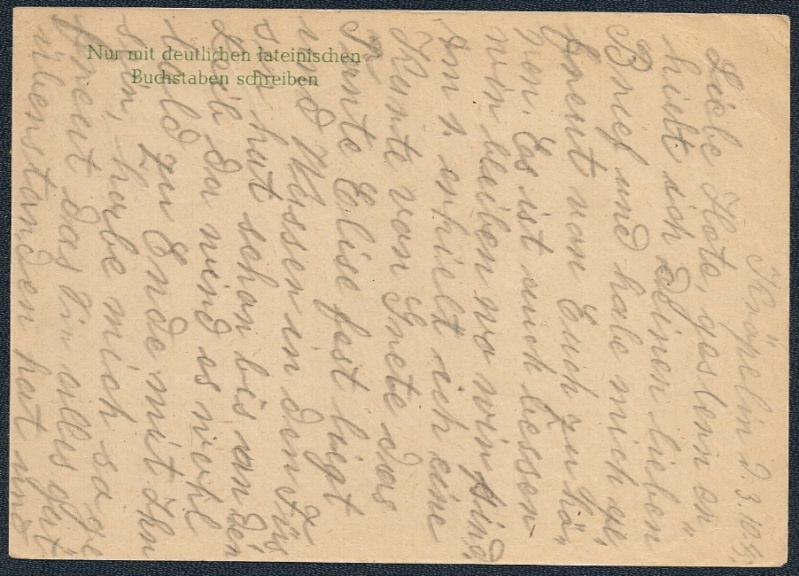 Nur mit deutlichen lateinischen
Buchstaben schreiben
Kröpelin d. 3. 10.
Liebe gestern er„
hielt ich deinen lieben
Brief und habe mich ge„
freut von Euch zu hö„
ren. Es ist auch besser
wir bleiben wo wir sind
Am 1. erhielt ich eine
Karte von Grete das
Tante Elise fest liegt
und Wasser in den Füs
hat schon bis an den
Leib da wird es wohl
bald zu Ende mit Ihr
sein, habe mich so ge
freut das Ihr alles gut
überstanden hat und